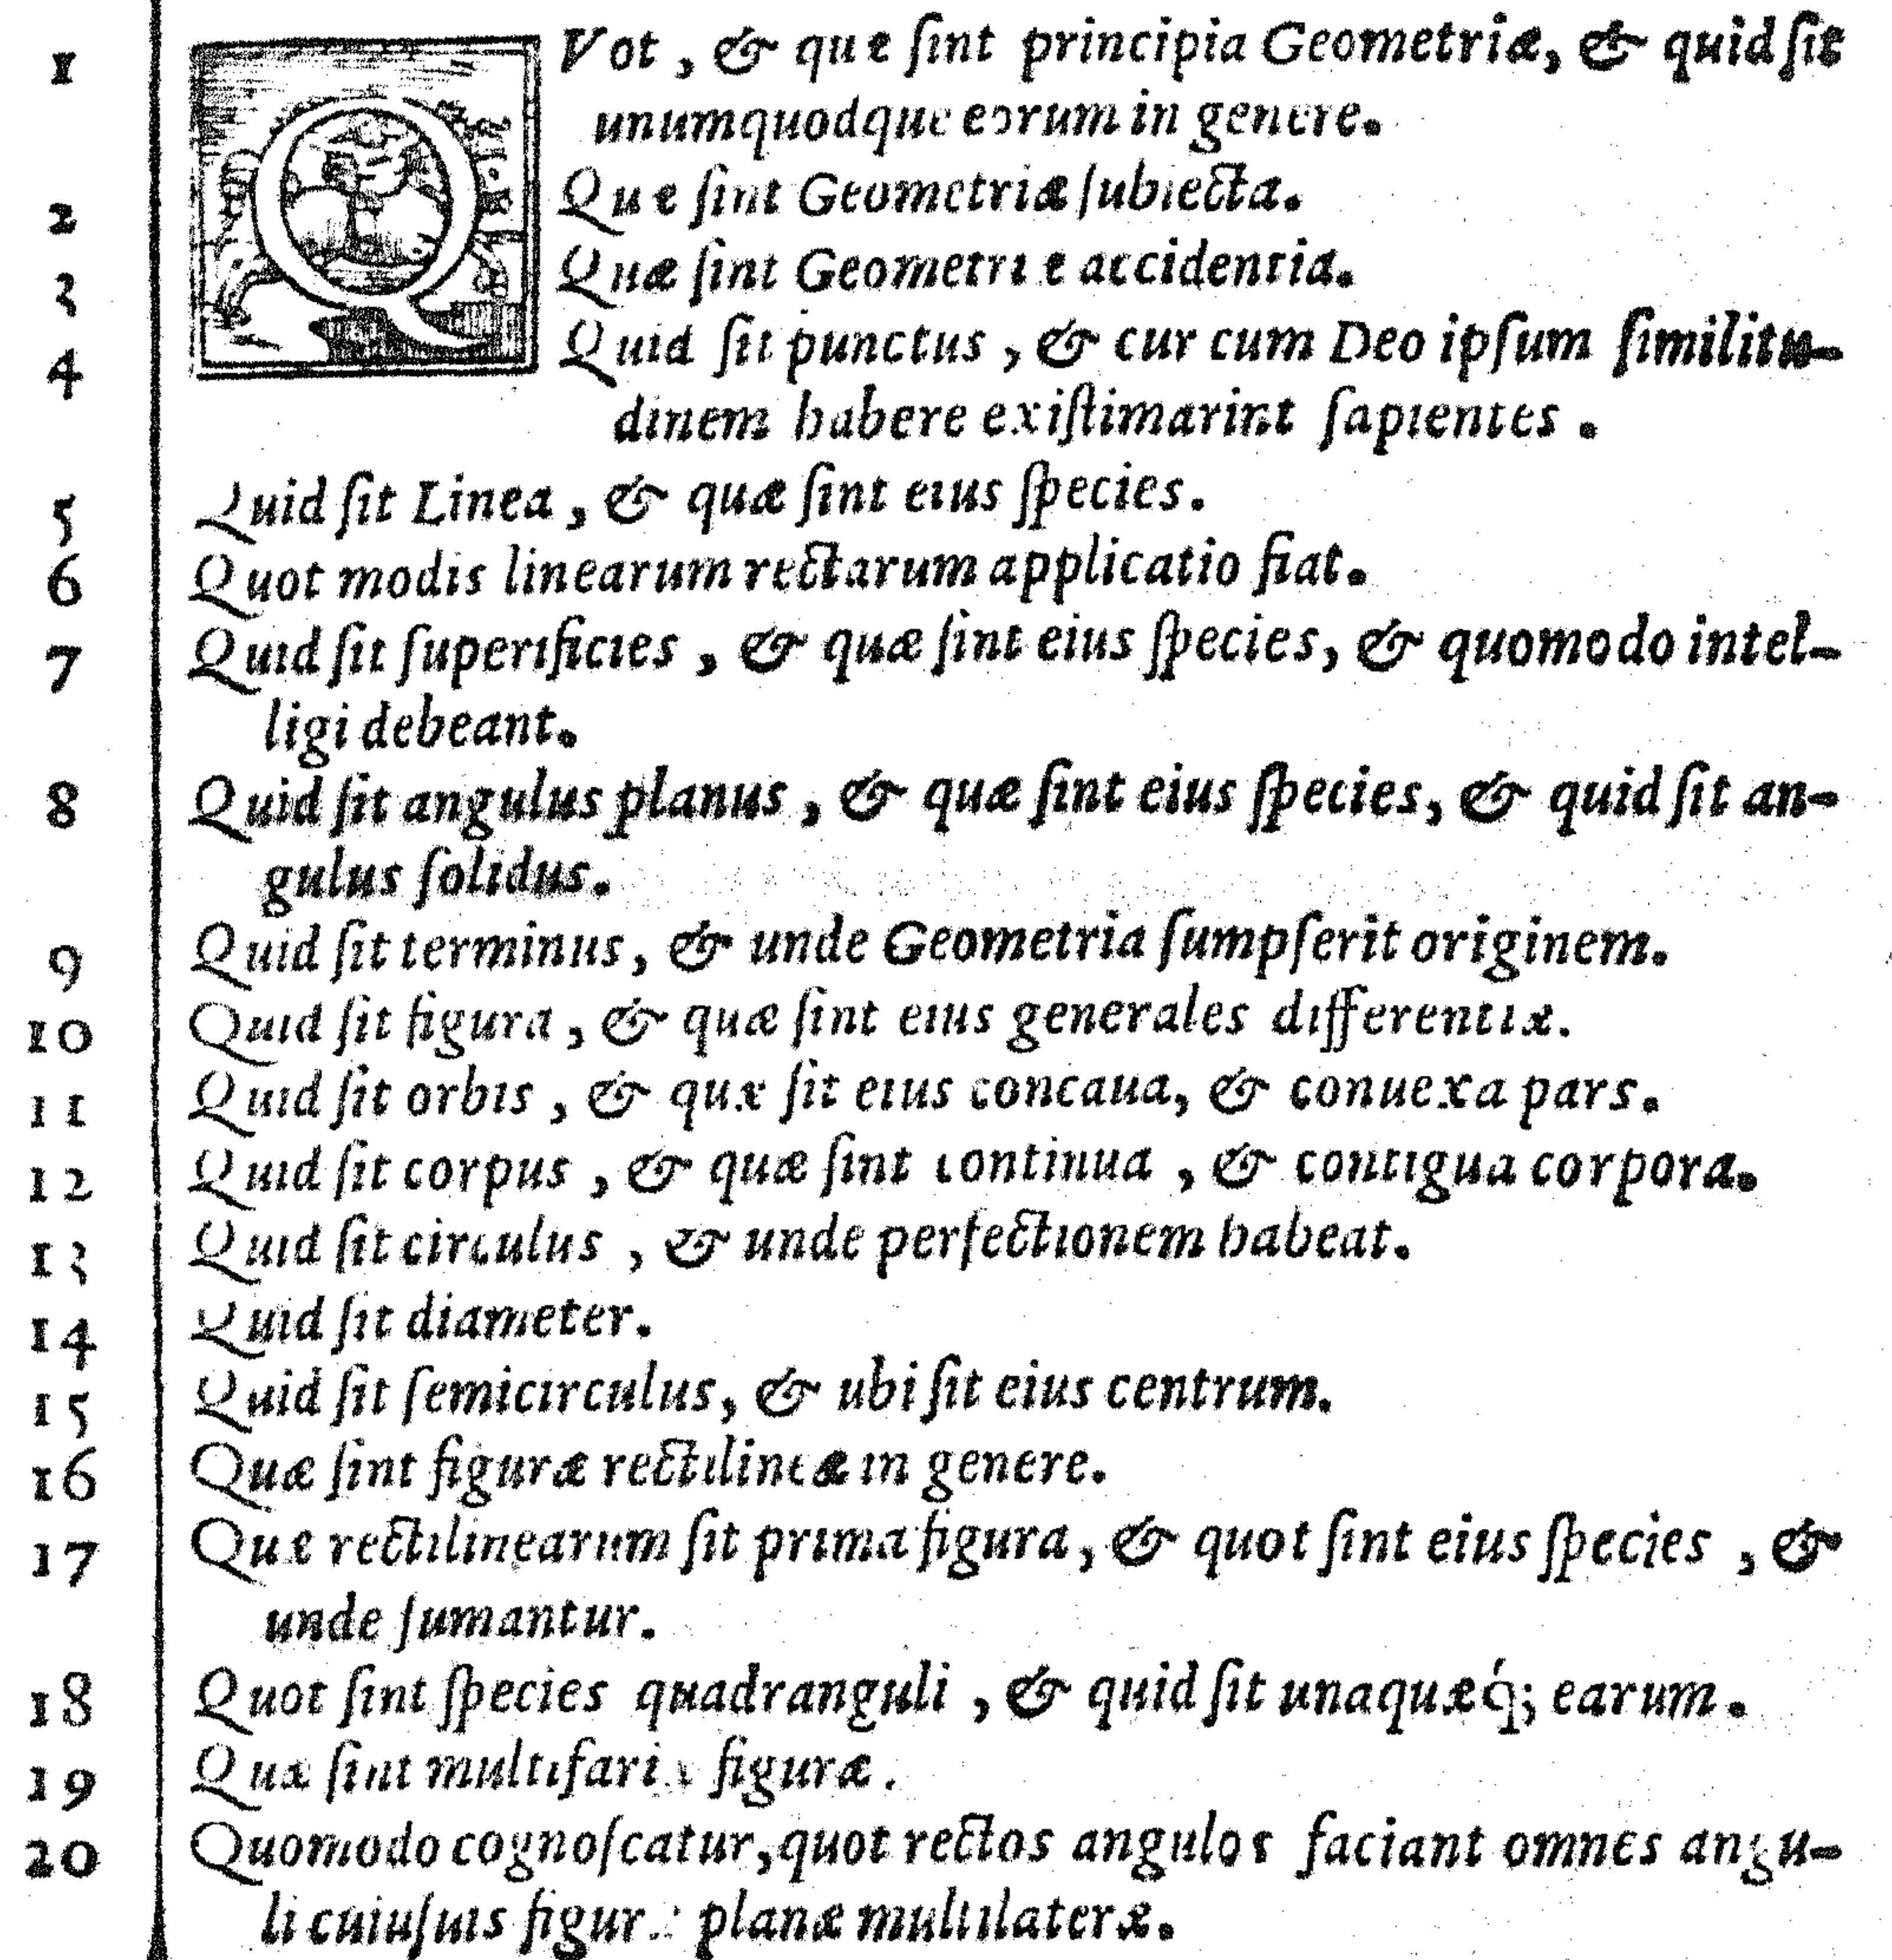 1 QVot, & quæ ſint principia Geometriæ, & quid ſit
unumquodque eorum in genere.
2 Quæ ſint Geometriæ ſubiecta.
3 Quæ ſint Geometriæ accidentia.
4 Quid ſit punctus, & cur cum Deo ipſum ſimilitu-
dinem habere exiſtimarint ſapientes.
5 Quid ſit Linea, & quæ ſint eius ſpecies.
6 Quot modis linearum rectarum applicatio fiat.
7 Quid ſit ſuperificies, & quæ ſint eius ſpecies, & quomodo intel-
ligi debeant.
8 Quid ſit angulus planus, & quæ ſint eius ſpecies, & quid ſit an-
gulus ſolidus.
9 Quid ſit terminus, & unde Geometria ſumpſerit originem.
10 Quid ſit figura, & quæ ſint eius generales differentiæ.
11 Quid ſit orbis, & quæ ſit eius concaua, & conuexa pars.
12 Quid ſit corpus, & quæ ſint continua, & contigua corpora.
13 Quid ſit circulus, & unde perfectionem habeat.
14 Quid ſit diameter.
15 Quid ſit ſemicirculus, & ubi ſit eius centrum.
16 Quæ ſint figuræ rectilineæ in genere.
17 Quæ rectilinearum ſit prima figura, & quot ſint eius ſpecies, &
unde ſumantur.
18 Quot ſint ſpecies quadranguli, & quid ſit unaquæq́; earum.
19 Quæ ſint multifariæ figuræ.
20 Quomodo cognoſcatur, quot rectos angulos faciant omnes angu-
li cuiuſuis figuræ planæ multilateræ.